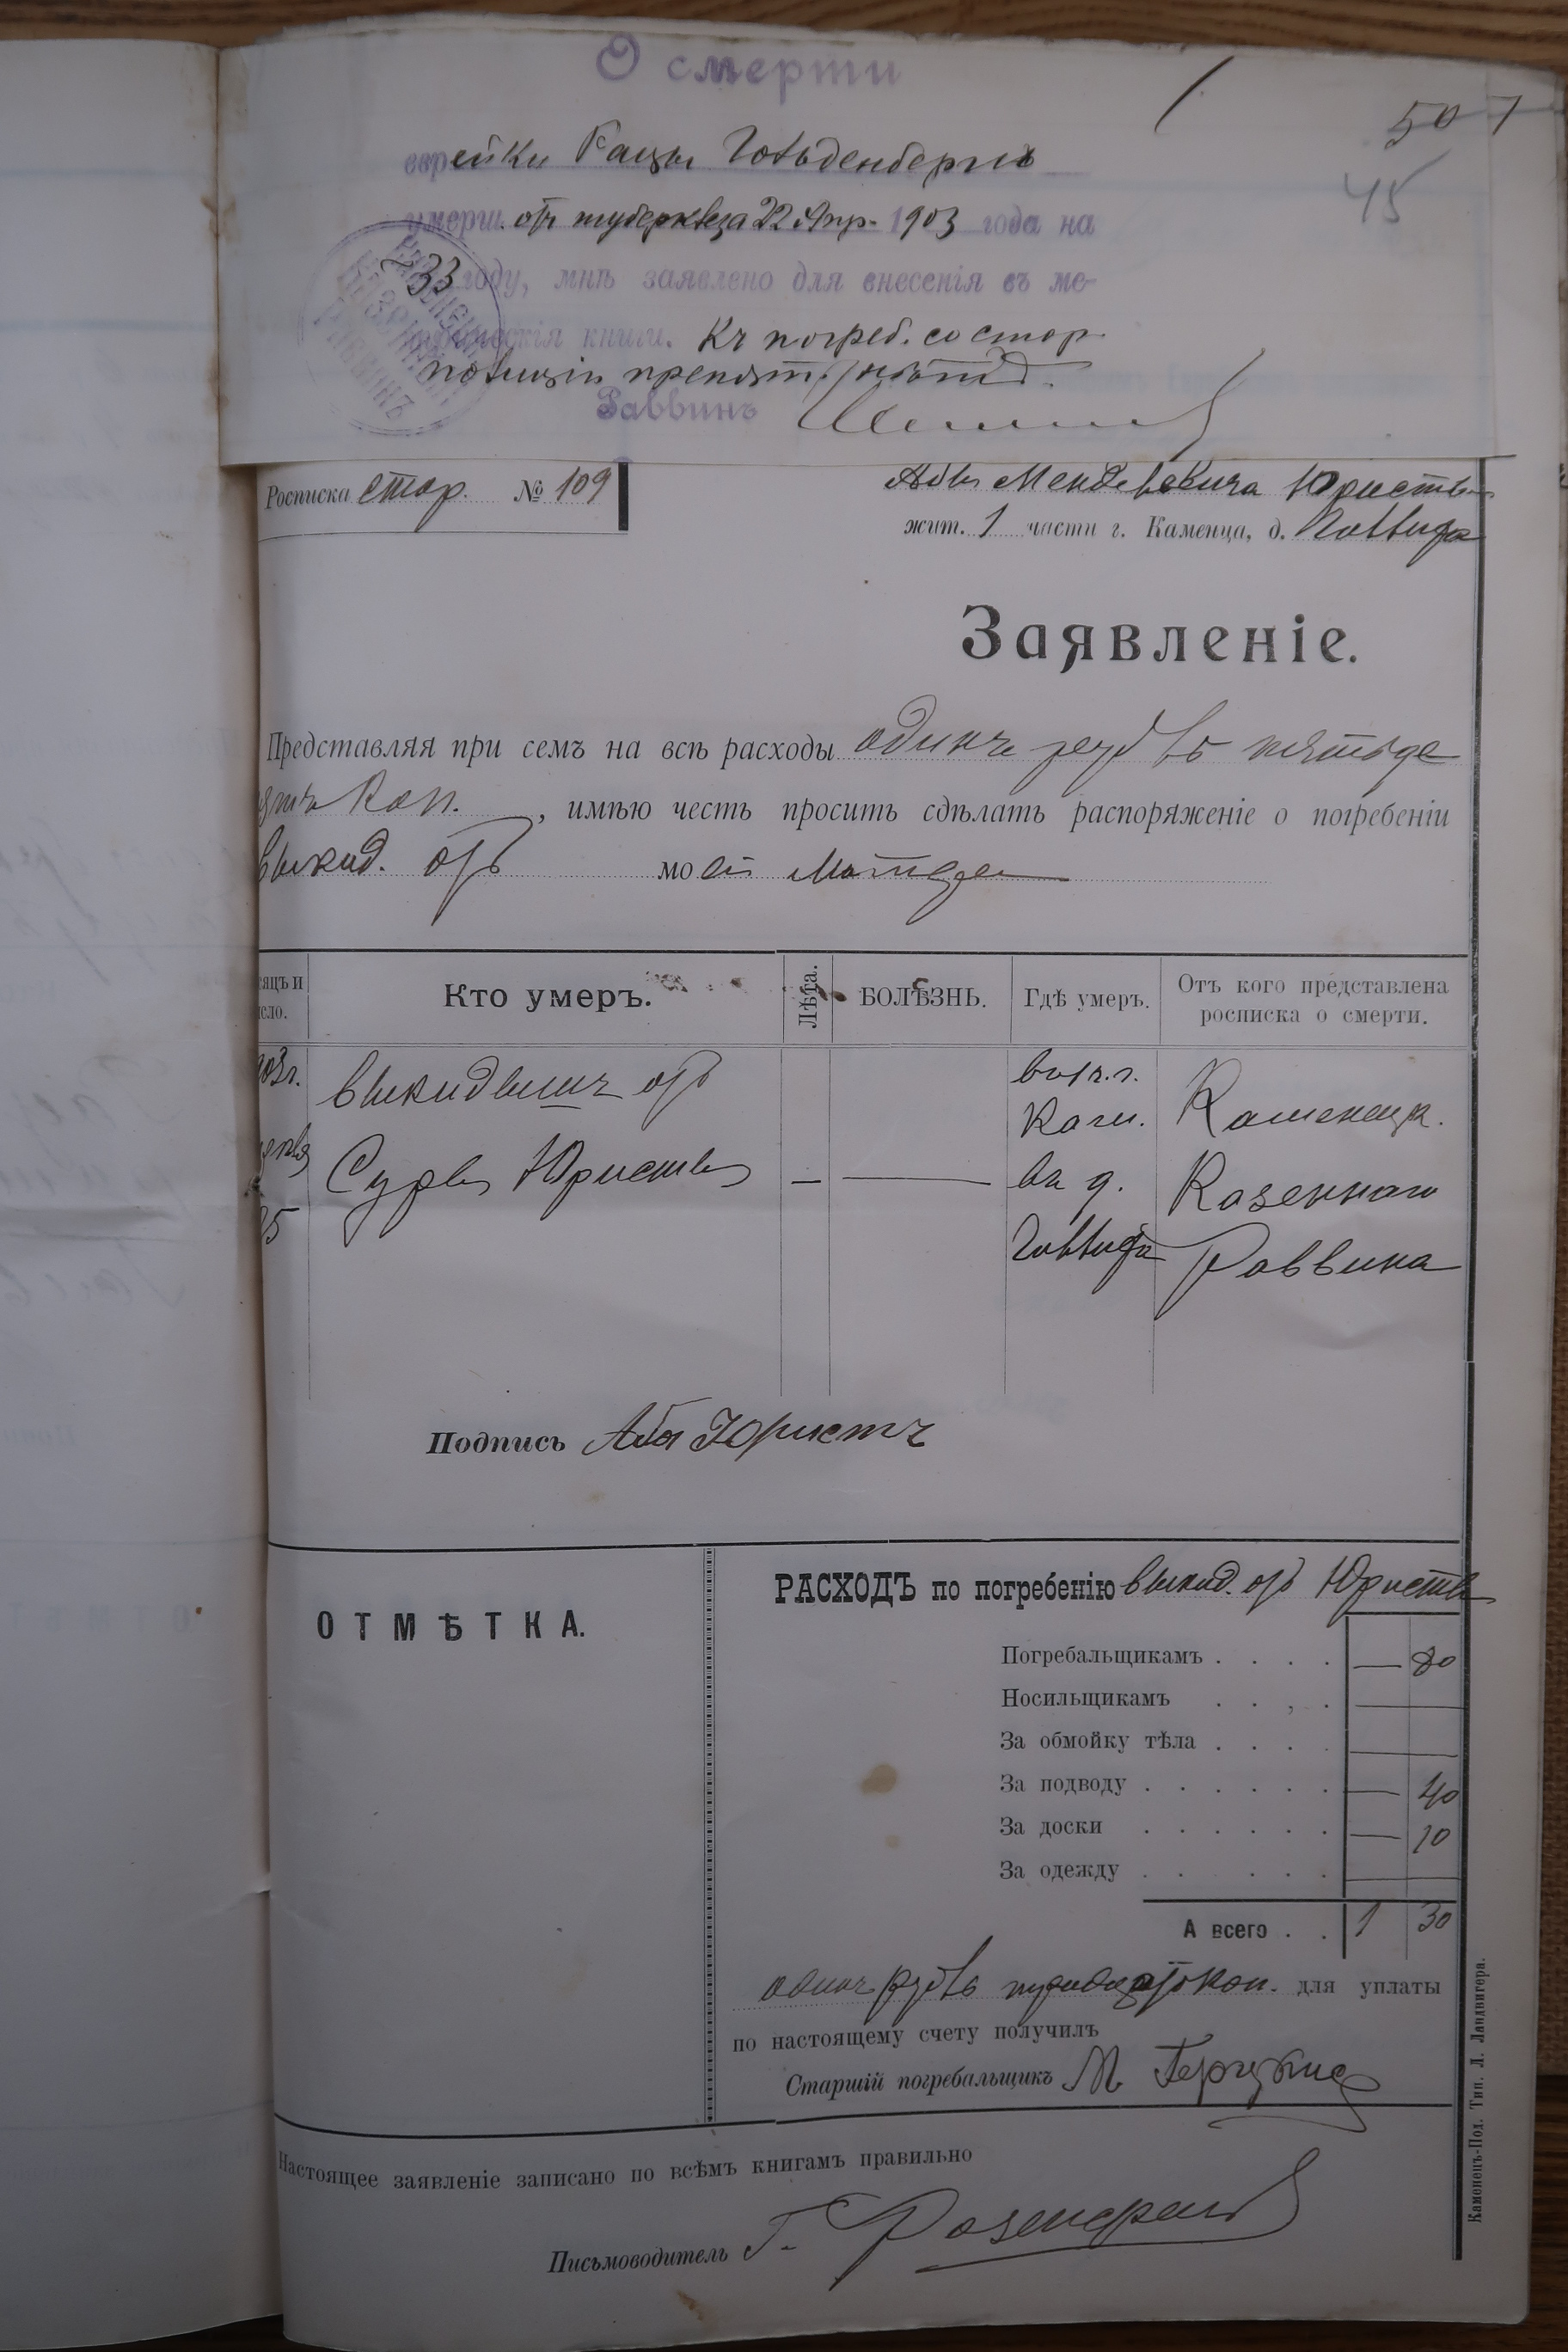 О смерти
507
45
еврейки Гольденбергъ
умерш. отъ 22 Апр. 1903 года на
33 году, мнѣ заявлено для внесенія въ ме-
книги. Къ погреб. со стор.
полиціи препят. нѣтъ.
Раввинъ
Росписка стор. № 109
Абы Менделевича Юриста
жит. 1 части г. Каменца, д.
Заявленіе.
Представляя при семъ на всѣ расходы одинъ рубль пятьде
сятъ коп., имѣю честь просить сдѣлать распоряженіе о погребеніи
выкид. отъ моей
сяцъ и
исло.
Кто умеръ.
Лѣта.
БОЛѢЗНЬ.
Гдѣ умеръ.
Отъ кого представлена
росписка о смерти.
903г.
25
выкидышъ отъ
Суры Юристъ
—
—
въ г.
Кам.
въ д.
Каменецк.
Казеннаго
Раввина
Подпись Аба Юристъ
ОТМѢТКА.
РАСХОДЪ по погребенію выкид. отъ Юристъ
Погребальщикамъ . . . . — 80
Носильщикамъ . . , . —
За обмойку тѣла . . . . —
За подводу . . . . . . — 40
За доски . . . . . . — 10
За одежду . . . . . —
А всего . . 1 30
одинъ рубль тридцать коп. для уплаты
по настоящему счету получилъ
Старшій погребальщикъ М.
Настоящее заявленіе записано по всѣмъ книгамъ правильно
Письмоводитель Г.
Каменецъ-Под. Тип. Л. Ландвигера.